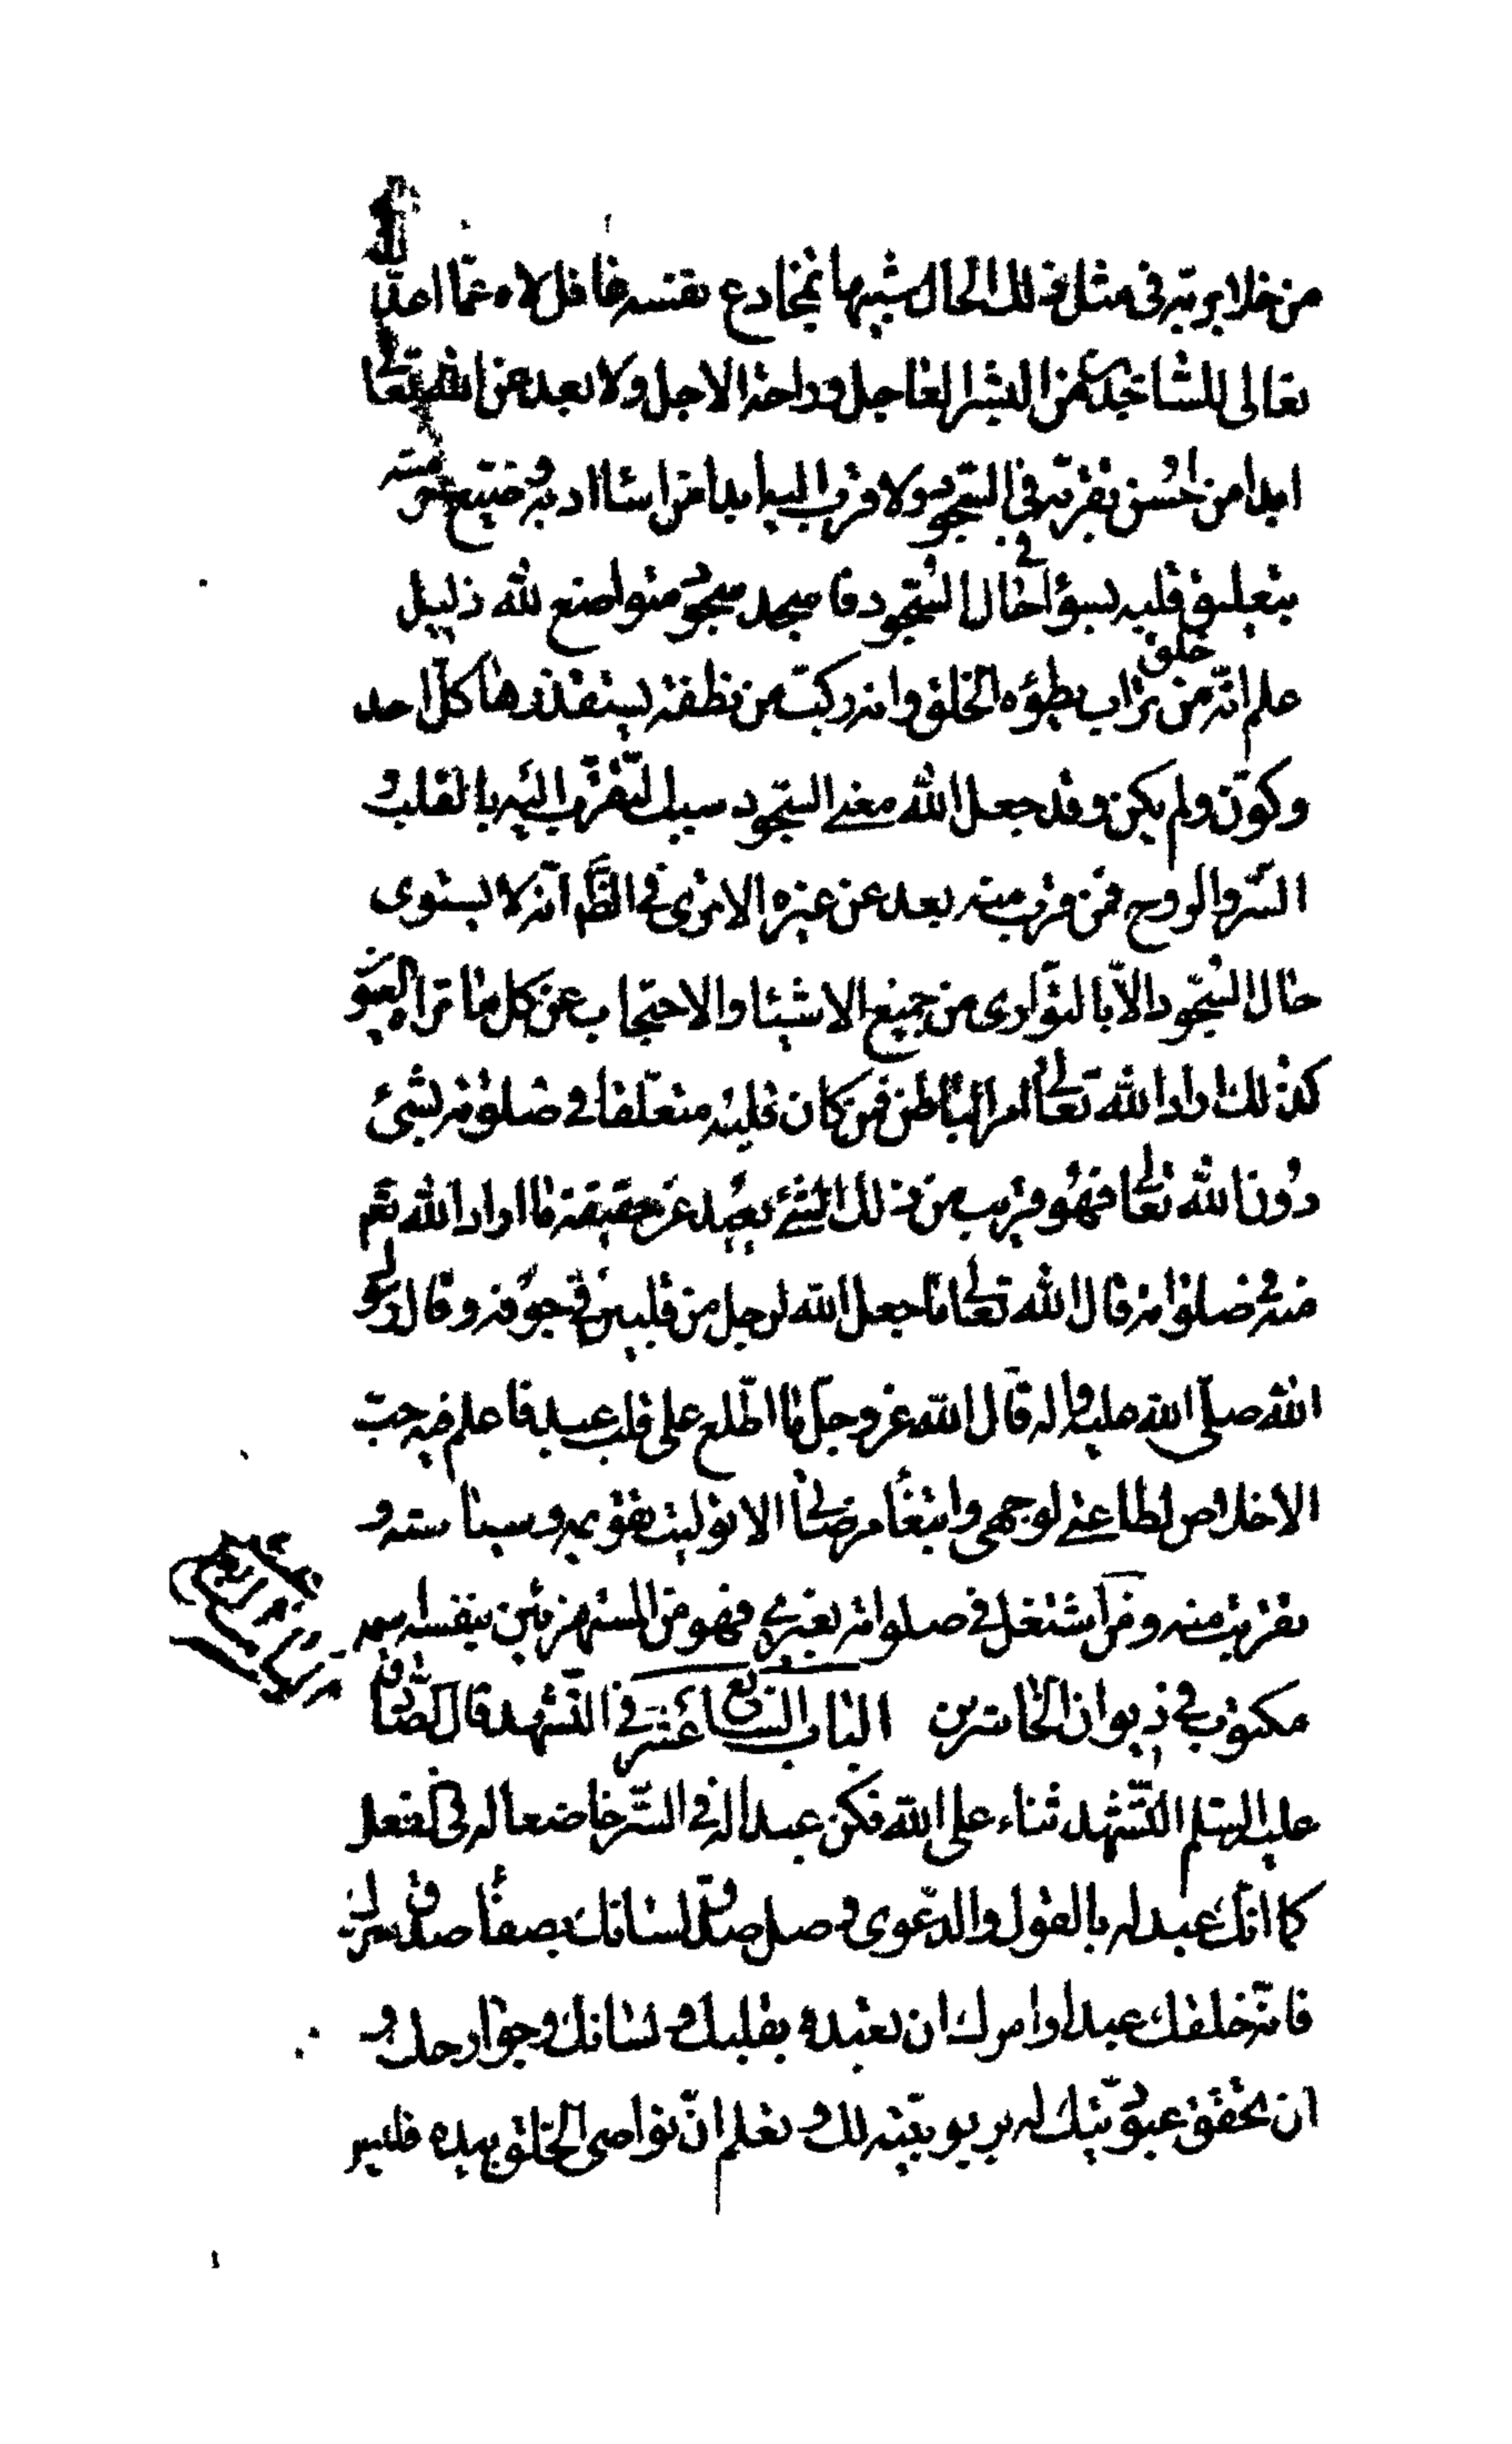 من خلا بربه فى مثل ذلك الحال شبيها بمخادع نفسه غافل لاه عما اعد الله
تعالى للساجدين من البشر العاجل وراحة الاجل ولا بعد عن الله تعالى
ابدا من احسن تقربه فى السجود ولا قرب اليه ابدا من اساء ادبه وضيع حرمته
بتعليق قلبه بسواه فى حال السجود فاسجد سجود متواضع لله ذليل
علم انه خلق من تراب يطؤه الخلق وانه ركب من نطفة يستقذرها كل احد
وكون ولم يكن وقد جعل الله معنى السجود سبب التقرب اليه بالقلب و
السر والروح فمن قرب منه بعد عن غيره الا ترى فى الظاهر انه لا يستوى
حال السجود الا بالتوارى من جميع الاشياء والاحتجاب عن كل ما تراه العيون
كذلك اراد الله تعالى امر الباطن فمن كان قلبه متعلقا فى صلوته بشئ
دون الله تعالى فهو قريب من ذلك الشئ بعيد عن حقيقة ما اراد الله تعم
منه فى صلواته قال الله تعالى ما جعل الله لرجل من قلبين فى جوفه وقال رسول
الله صلى الله عليه واله قال الله عز وجل ما اطلع على قلب عبد فاعلم فيه حب
الاخلاص لطاعتى لوجهى وابتغاء مرضاتى الا توليت تقويمه وسياسته و
تقربت منه ومن اشتغل فى صلواته بغيرى فهو من المستهزئين بنفسه اسمه
مكتوب فى ديوان الخاسرين الباب السابع عشر فى التشهد قال الصادق
عليه السلم التشهد ثناء على الله فكن عبدا له فى السر خاضعا له فى الفعل
كما انك عبد له بالقول والدعوى وصل صدق لسانك بصفاء صدق سرك
فانه خلقك عبدا وامرك ان تعبده بقلبك ولسانك وجوارحك و
ان تحقق عبوديتك له بربوبيته لك وتعلم ان نواصى الخلق بيده فليس